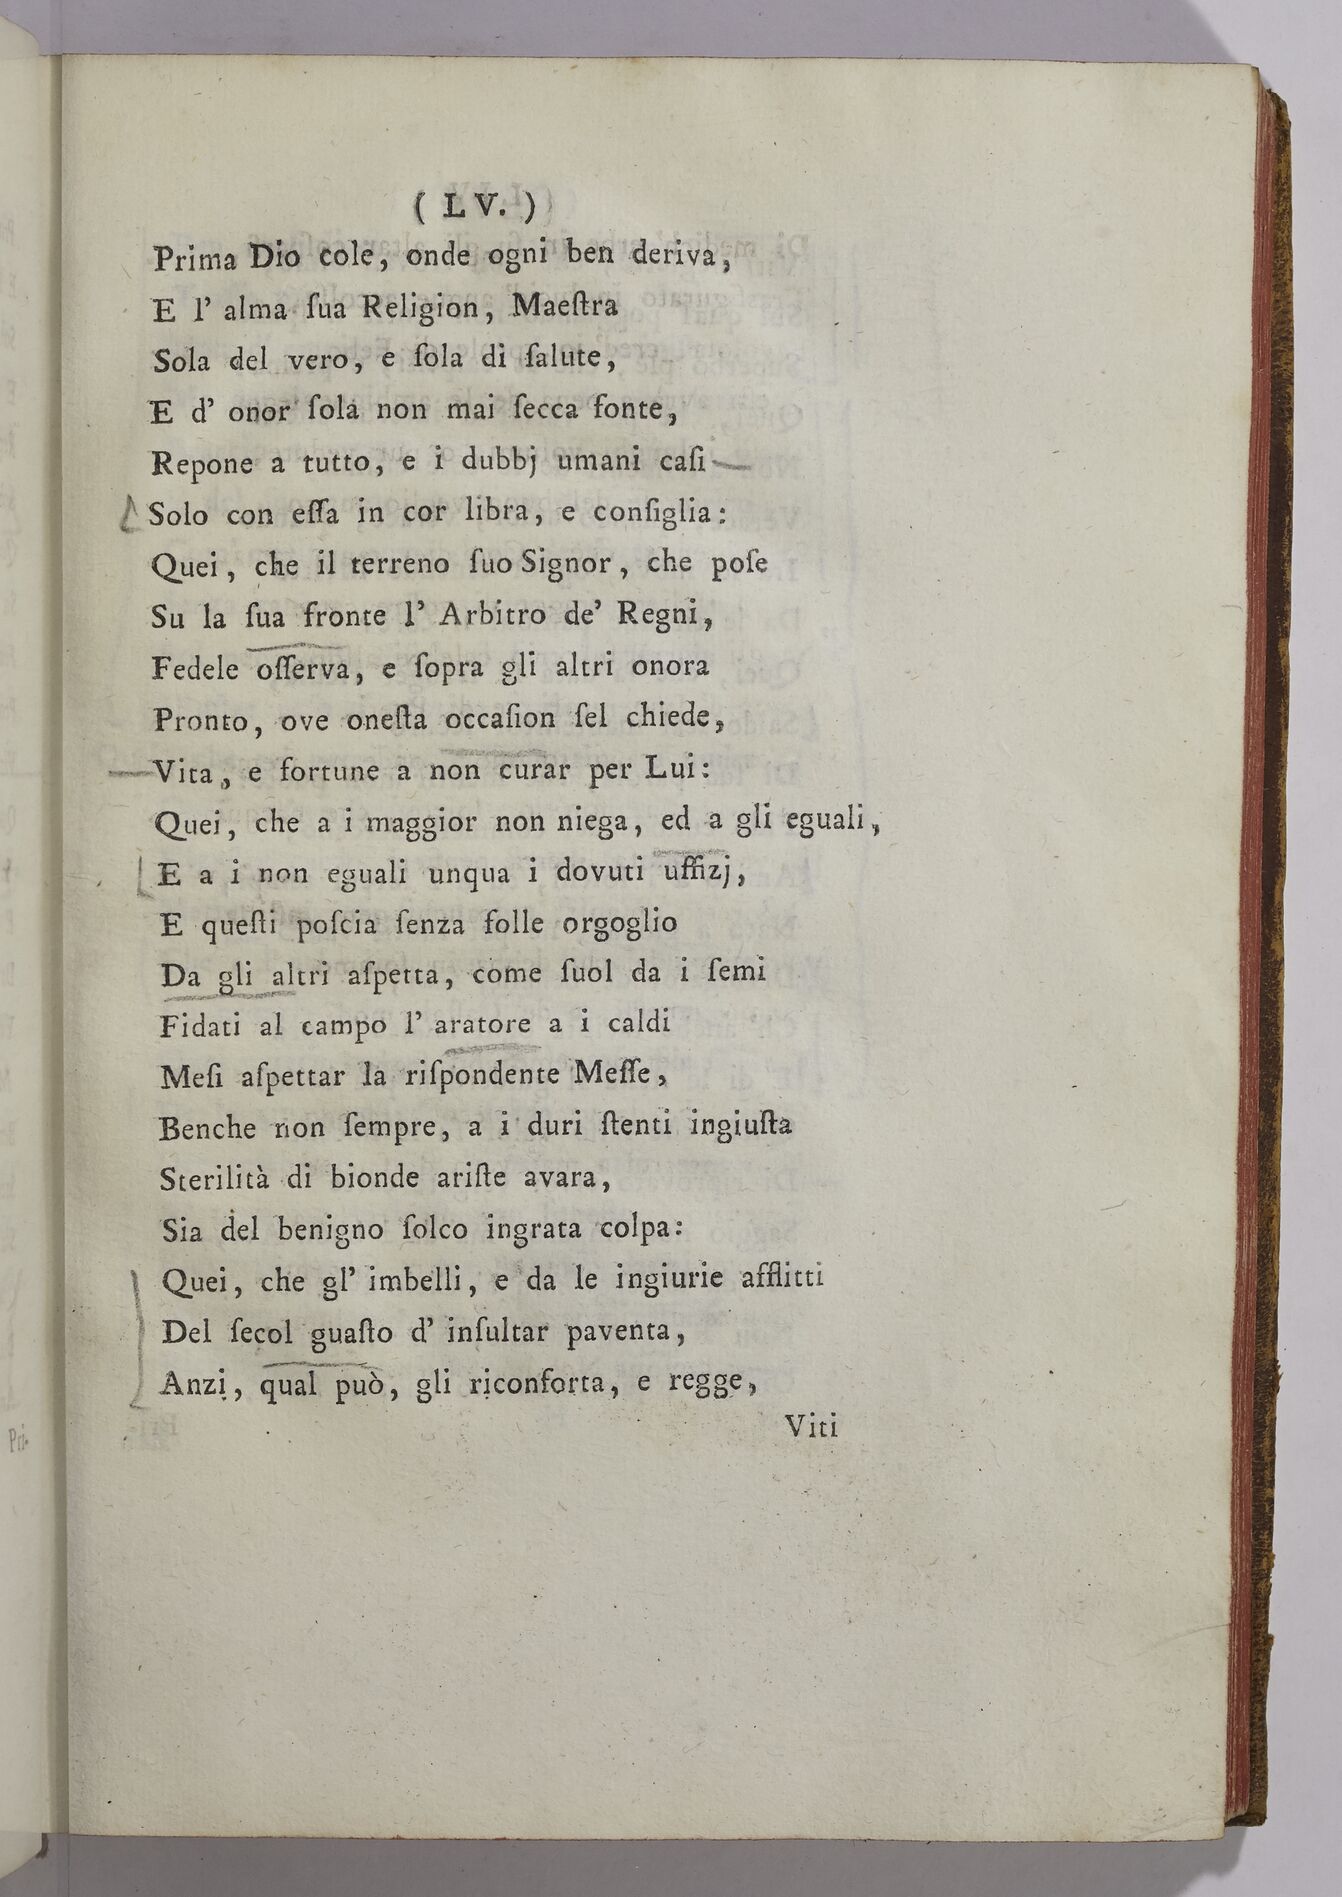 ( LV. )
Prima Dio cole, onde ogni ben deriva,
E l' alma ſua Religion, Maeſtra
Sola del vero, e ſola di ſalute,
E d' onor ſola non mai ſecca fonte,
Repone a tutto, e i dubbj umani caſi
Solo con eſſa in cor libra, e conſiglia:
Quei, che il terreno ſuo Signor, che poſe
Su la ſua fronte l' Arbitro de' Regni,
Fedele oſſerva, e ſopra gli altri onora
Pronto, ove oneſta occaſion ſel chiede,
Vita, e fortune a non curar per Lui:
Quei, che a i maggior non niega, ed a gli eguali,
E a i non eguali unqua i dovuti uffizj,
E queſti poſcia ſenza folle orgoglio
Da gli altri aſpetta, come ſuol da i ſemi
Fidati al campo l' aratore a i caldi
Meſi aſpettar la riſpondente Meſſe,
Benche non ſempre, a i duri ſtenti ingiuſta
Sterilità di bionde ariſte avara,
Sia del benigno ſolco ingrata colpa:
Quei, che gl' imbelli, e da le ingiurie afflitti
Del ſecol guaſto d' inſultar paventa,
Anzi, qual può, gli riconforta, e regge,
Viti
Pri-